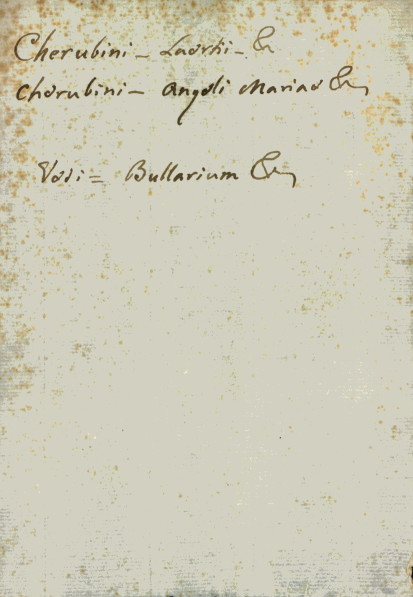 Cherubini - Laertii - &
Cherubini - Angeli Mariae &
Vedi = Bullarium &